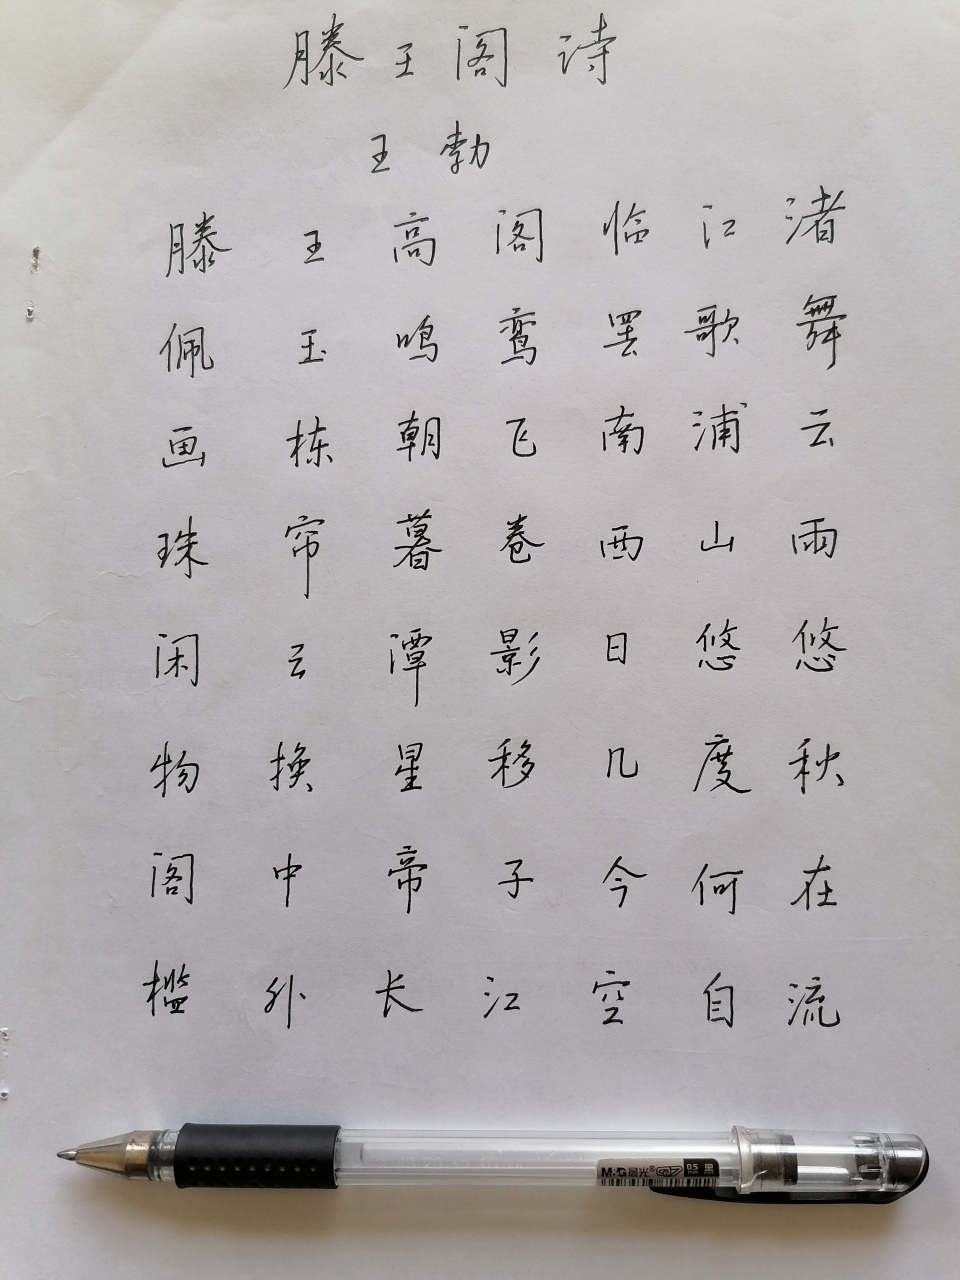 滕王阁诗
王勃
滕王高阁临江渚
佩玉鸣鸾罢歌舞
画栋朝飞南浦云
珠帘暮卷西山雨
闲云潭影日悠悠
物换星移几度秋
阁中帝子今何在
槛外长江空自流
M&G 晨光® Q7 0.5 mm 黑